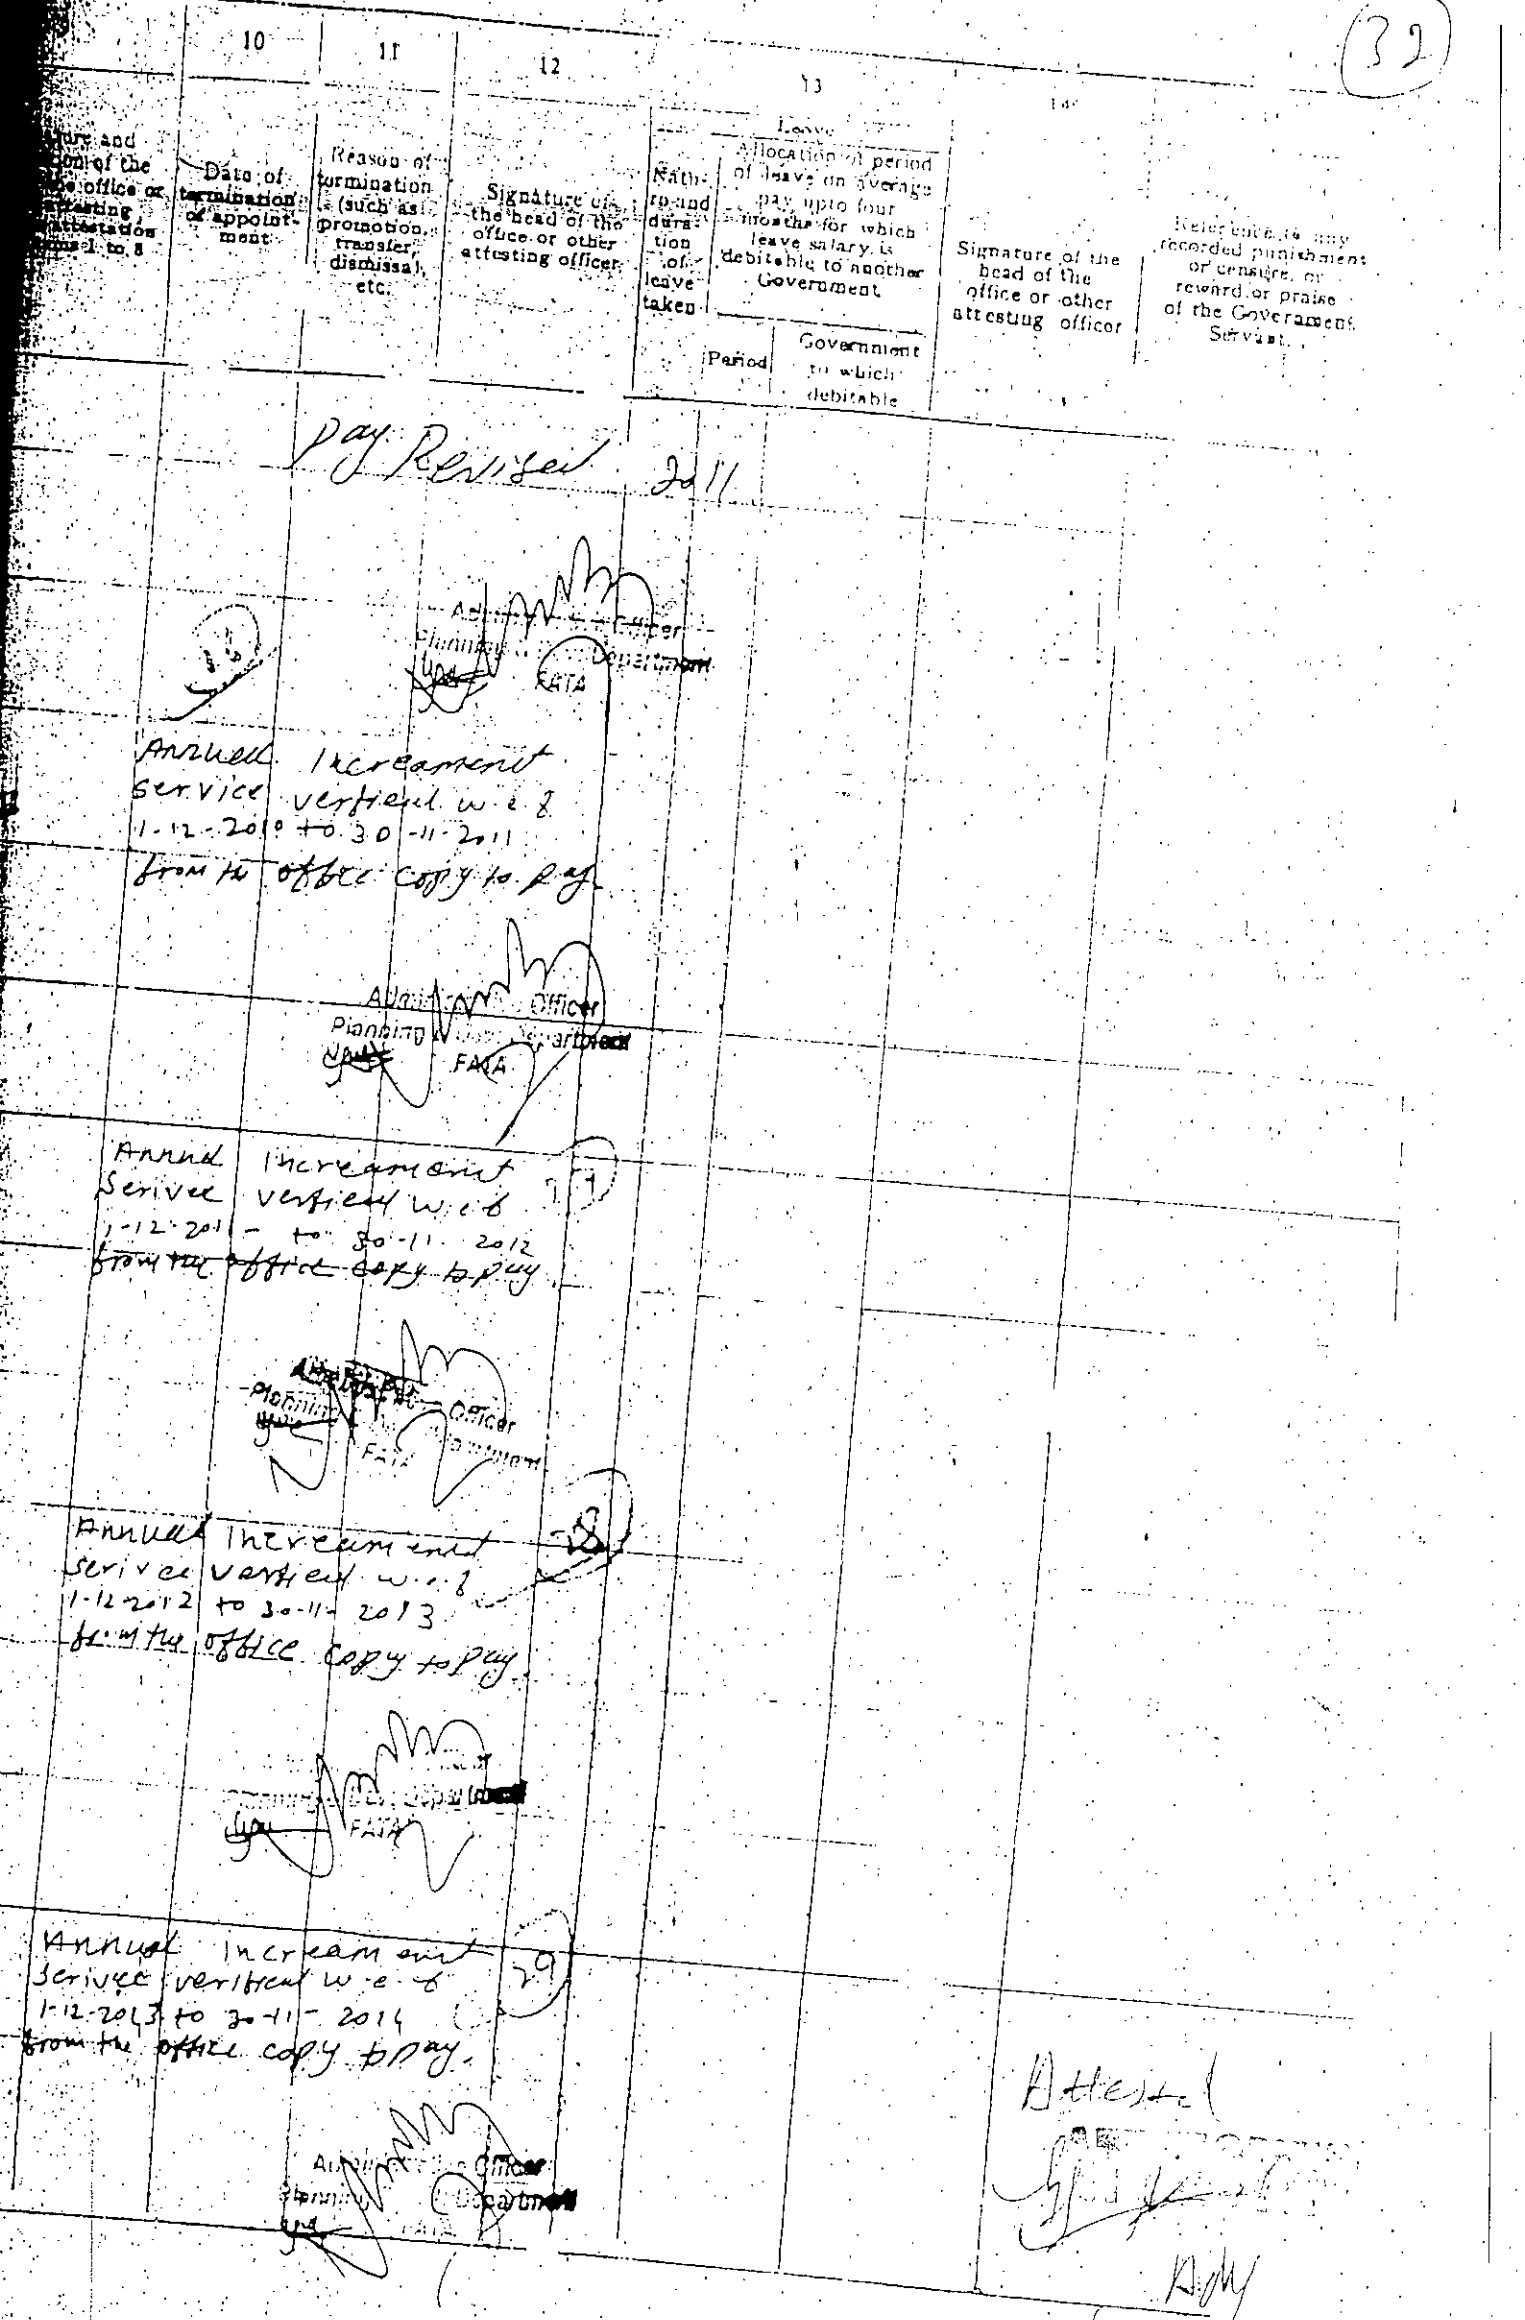 32
10
11
12
13
and
of the
office or
attesting
attestation
1 to 8
Date of
termination
of appoint-
ment
Reason of
termination
(such as
promotion,
transfer,
dismissal,
etc.
Signature of
the head of the
office or other
attesting officer
dura-
tion
of
leave
taken
Leave
Allocation of period
of leave on average
pay upto four
months for which
leave salary is
debitable to another
Government
Period
Government
to which
debitable
Signature of the
head of the
office or other
attesting officer
Reference to any
recorded punishment
or censure, or
reward or praise
of the Government
Servant.
Pay Revised 2011
Officer
Planning Department
FATA
Annual Increament
service verfied w.e.f
1-12-2010 to 30-11-2011
from the office copy to pay
Officer
Planning Department
FATA
Annual Increament
Serivce verfied w.e.f
1-12-2011 - to 30-11-2012
from the office copy to pay
Officer
Planning
FATA
Annual Increament
serivce verfied w.e.f
1-12-2012 to 30-11-2013
from the office copy to pay
Department
FATA
Annual Increament
Serivce verified w.e.f
29
1-12-2013 to 30-11-2014
from the office copy to pay.
Officer
Planning Department
FATA
Attested